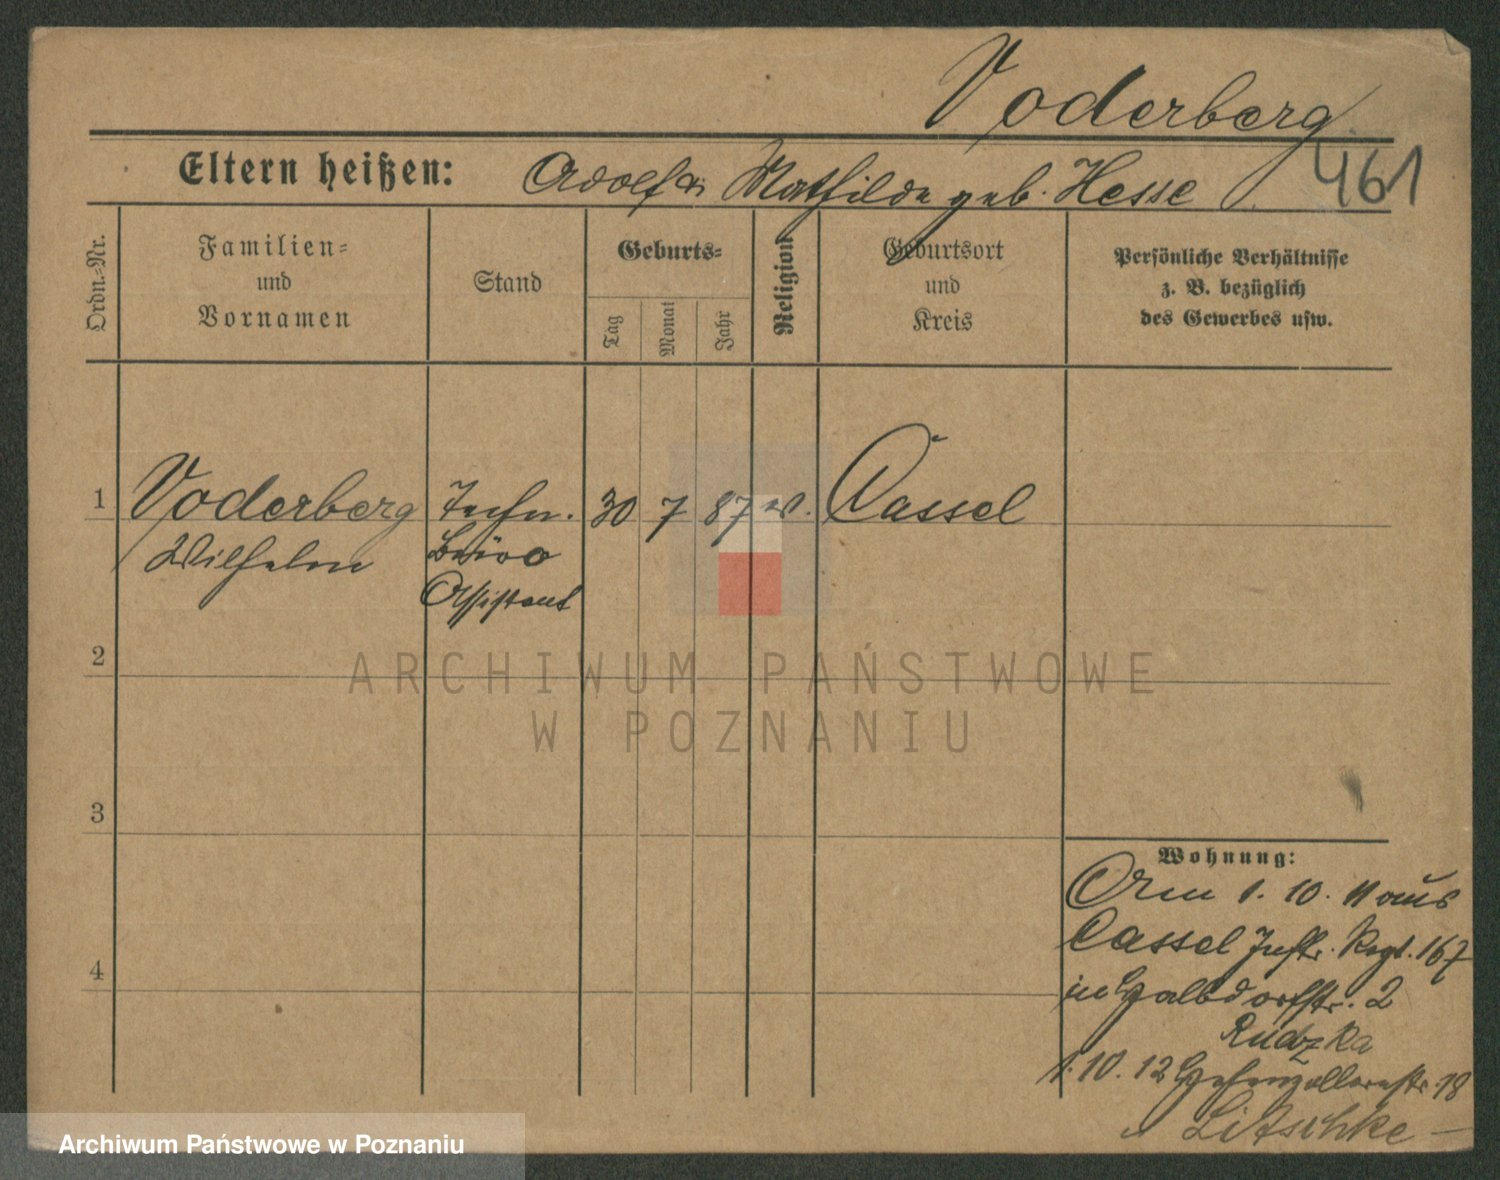 Voderberg
461
Eltern heißen: Adolf Mathilde geb. Hesse
Ordn.-Nr.
Familien-
und
Vornamen
Stand
Geburts-
Tag
Monat
Jahr
Religion
Geburtsort
und
Kreis
Persönliche Verhältnisse
z. B. bezüglich
des Gewerbes usw.
1 Voderberg Techn. 30 7 87 Cassel
Wilhelm Büro
Assistent
2
ARCHIWUM PAŃSTWOWE
W POZNANIU
3
4
Wohnung:
1. 10. 11 aus
Cassel Inftr. Regt. 167
in 2
Rudzka
1. 10. 12 Hohenzollernstr. 18
Litschke
Archiwum Państwowe w Poznaniu